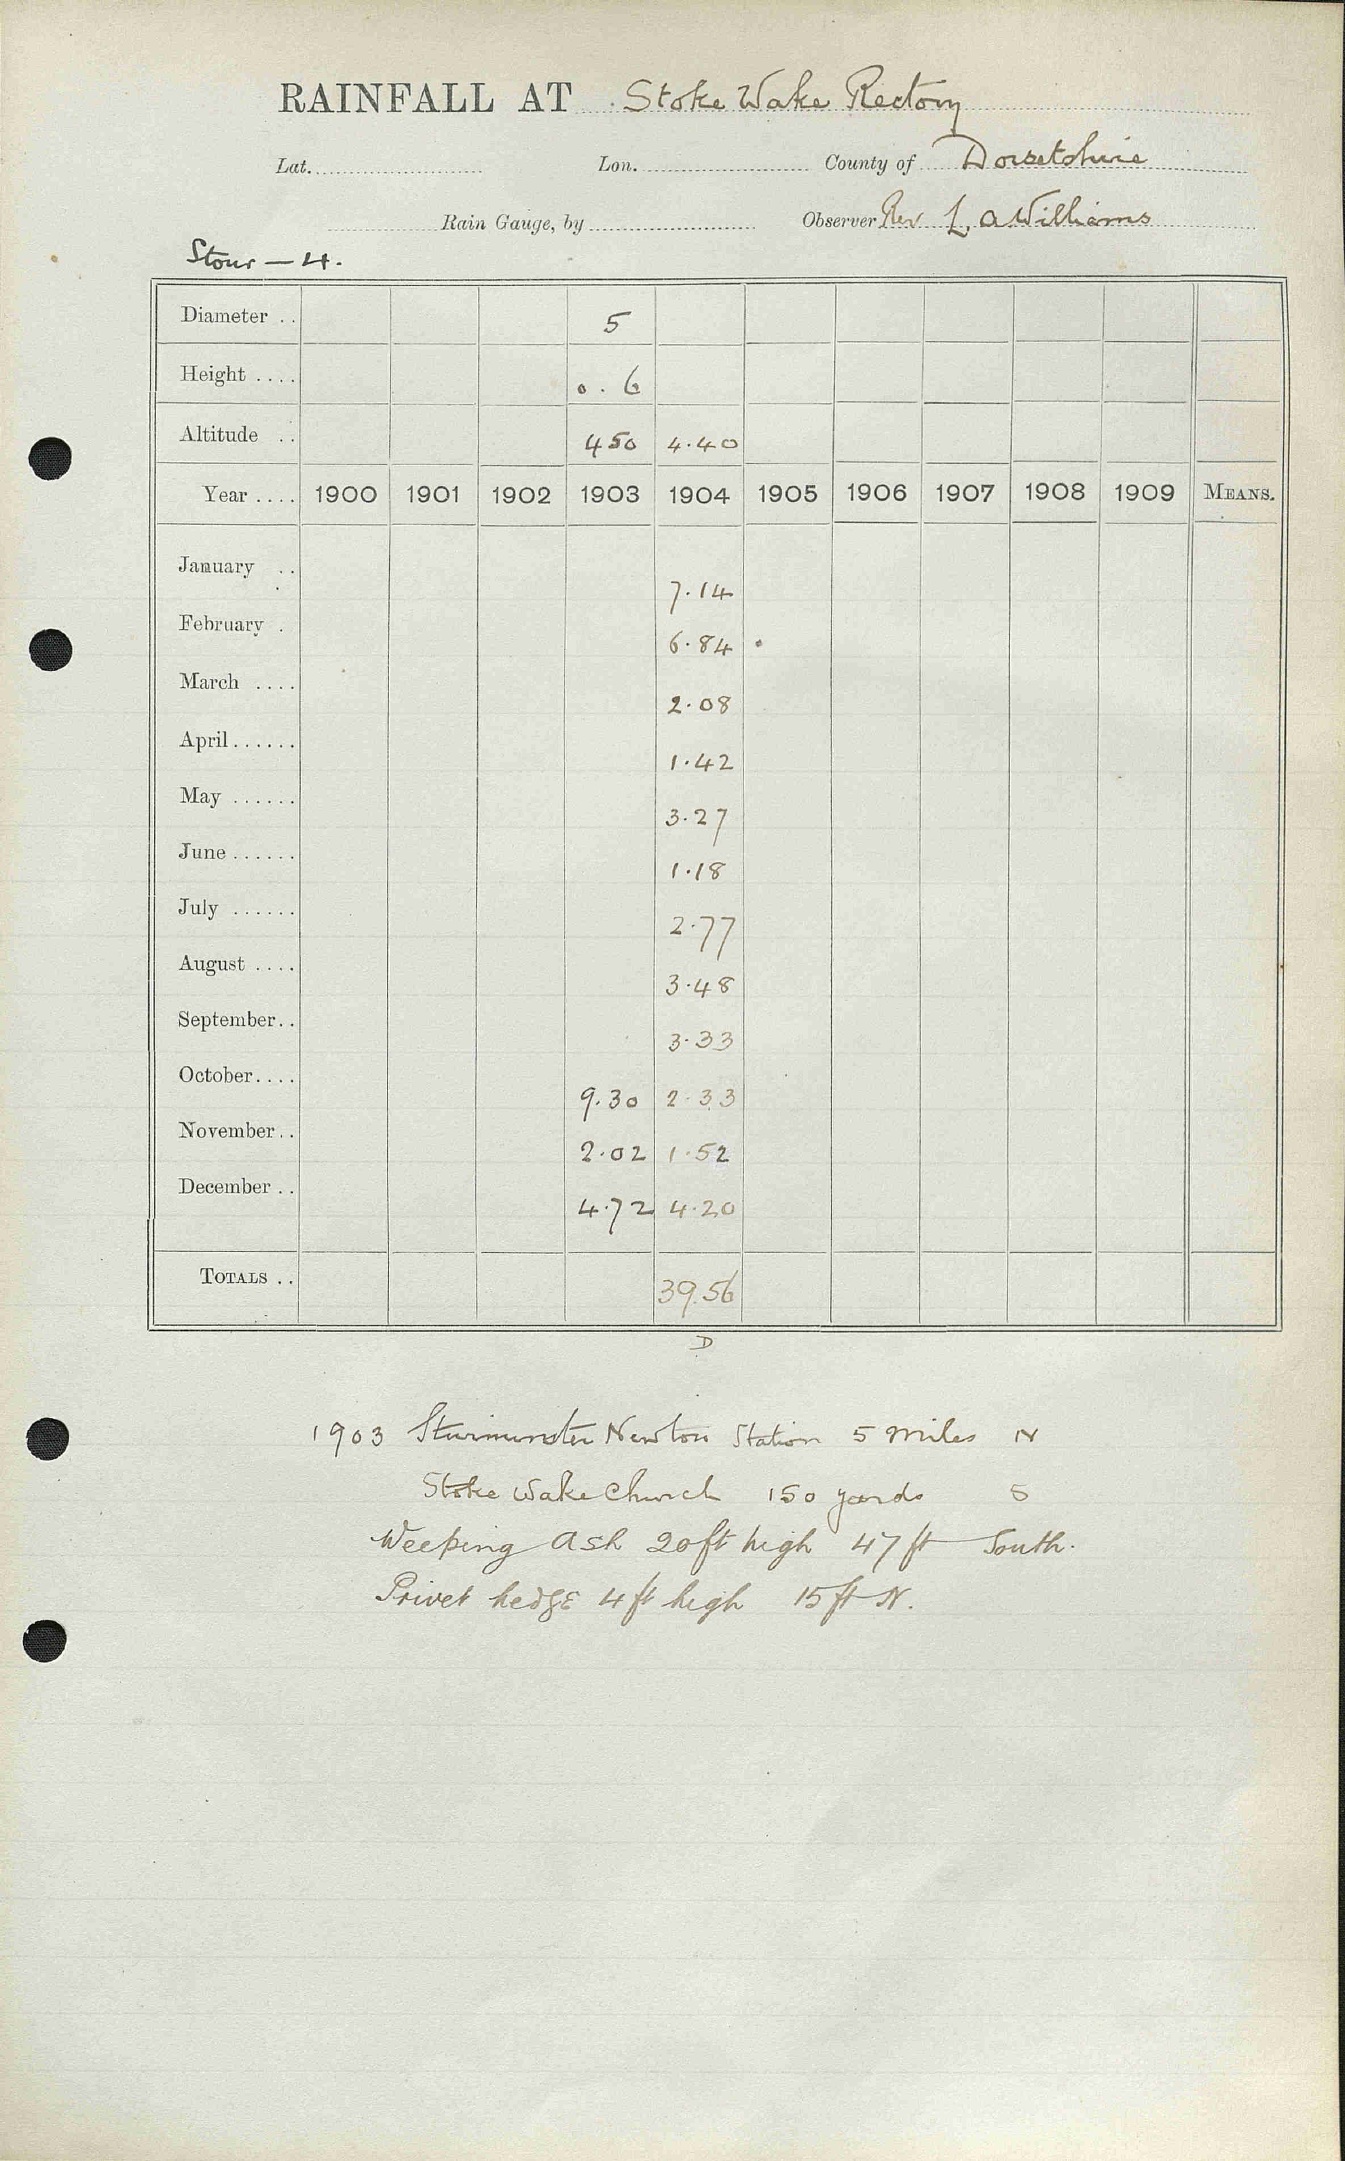 RAINFALL AT Stoke Wake Rectory
Lat. Lon. County of Dorsetshire
Rain Gauge, by Observer Rev L A Williams
Stour — 4.
Diameter .. 5
Height .... 0.6
Altitude .. 450 4.40
Year .... 1900 1901 1902 1903 1904 1905 1906 1907 1908 1909 MEANS.
January .. 7.14
February . 6.84
March .... 2.08
April...... 1.42
May ...... 3.27
June ...... 1.18
July ...... 2.77
August .... 3.48
September.. 3.33
October.... 9.30 2.33
November.. 2.02 1.52
December .. 4.72 4.20
TOTALS .. 39.56
D
1903 Sturminster Newton Station 5 miles N
Stoke Wake Church 150 yards S
Weeping Ash 20ft high 47 ft South.
Privet hedge 4 ft high 15 ft N.